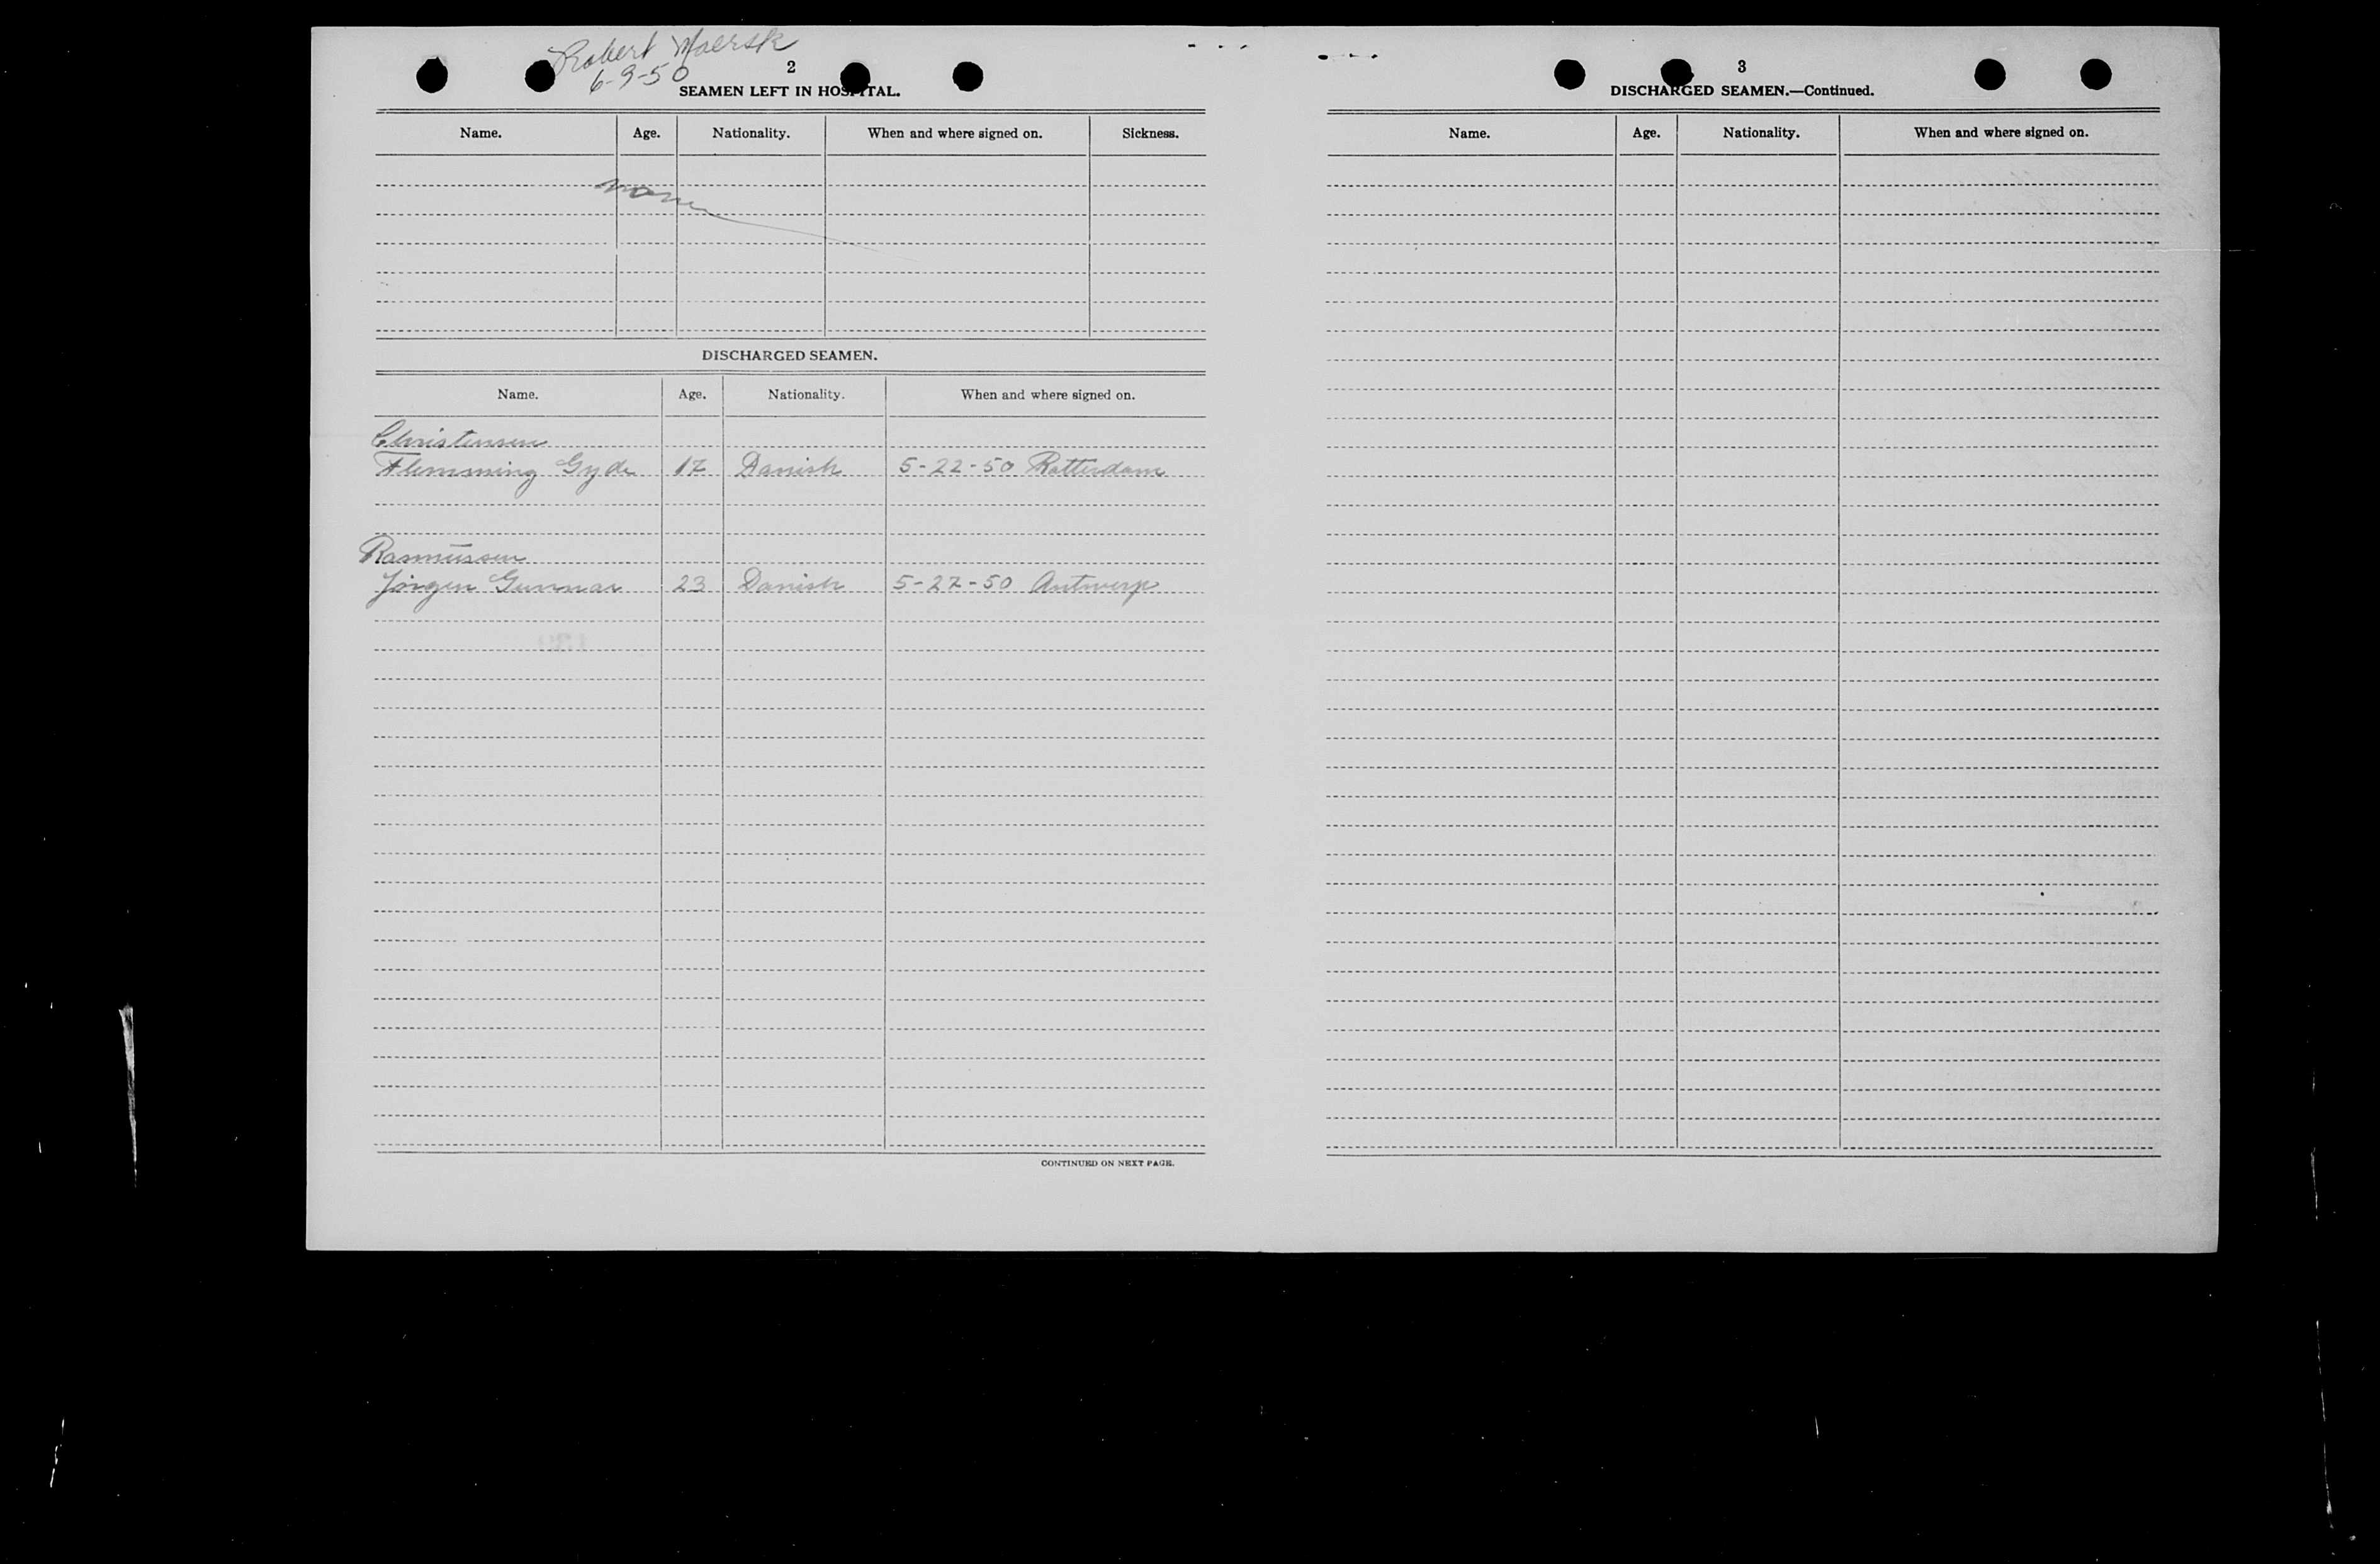 Robert Maersk
6-9-50
2
SEAMEN LEFT IN HOSPITAL.
Name. Age. Nationality. When and where signed on. Sickness.
none
DISCHARGED SEAMEN.
Name. Age. Nationality. When and where signed on.
Christensen
Flemming Gyde 17 Danish 5-22-50 Rotterdam
Rasmussen
Jörgen Gunnar 23 Danish 5-27-50 Antwerp
CONTINUED ON NEXT PAGE.
3
DISCHARGED SEAMEN.—Continued.
Name. Age. Nationality. When and where signed on.